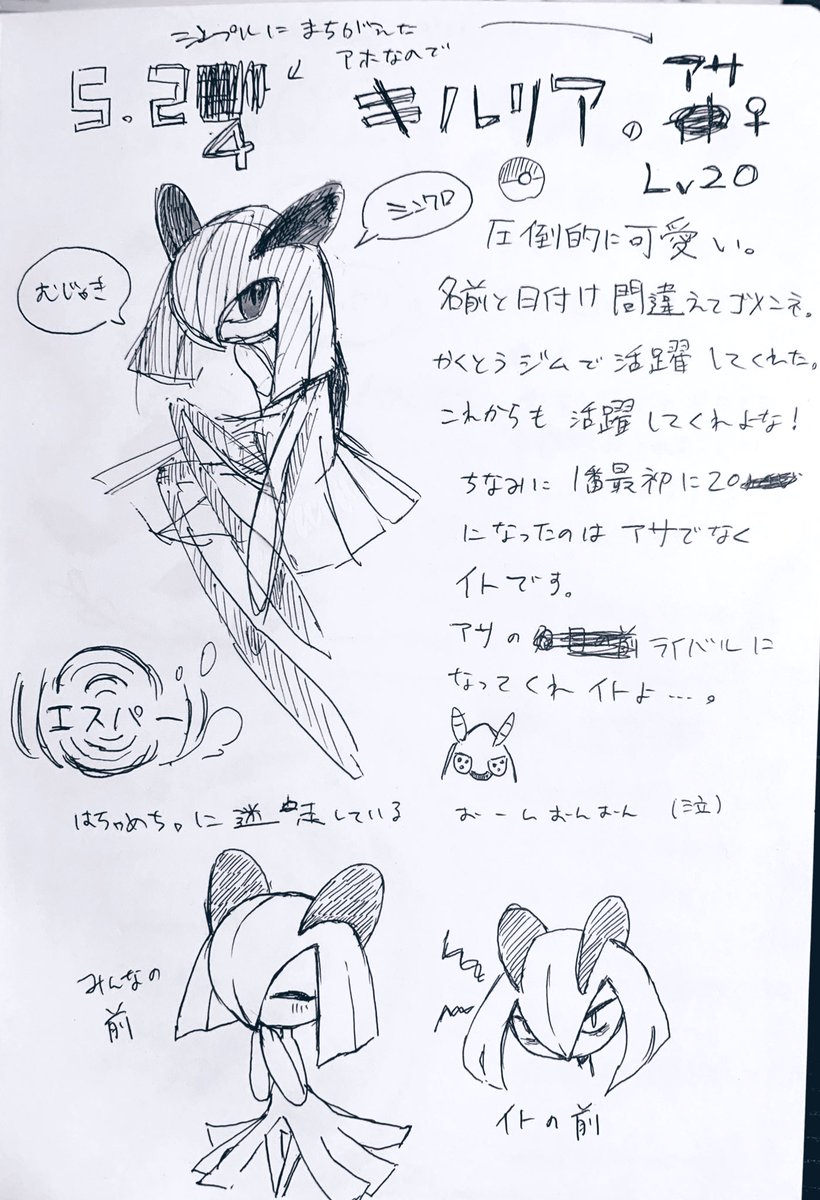 シンプルにまちがえた
アホなので
5.24
キルリアのアサ♀
Lv20
シンクロ
むじゃき
圧倒的に可愛い。
名前と日付け間違えてゴメンネ。
かくとうジムで活躍してくれた。
これからも活躍してくれよな！
ちなみに1番最初に20
になったのはアサでなく
イトです。
アサのライバルに
なってくれイトよ…。
エスパー
はちゃめちゃに迷走している
おーんおんおん（泣）
みんなの
前
イトの前